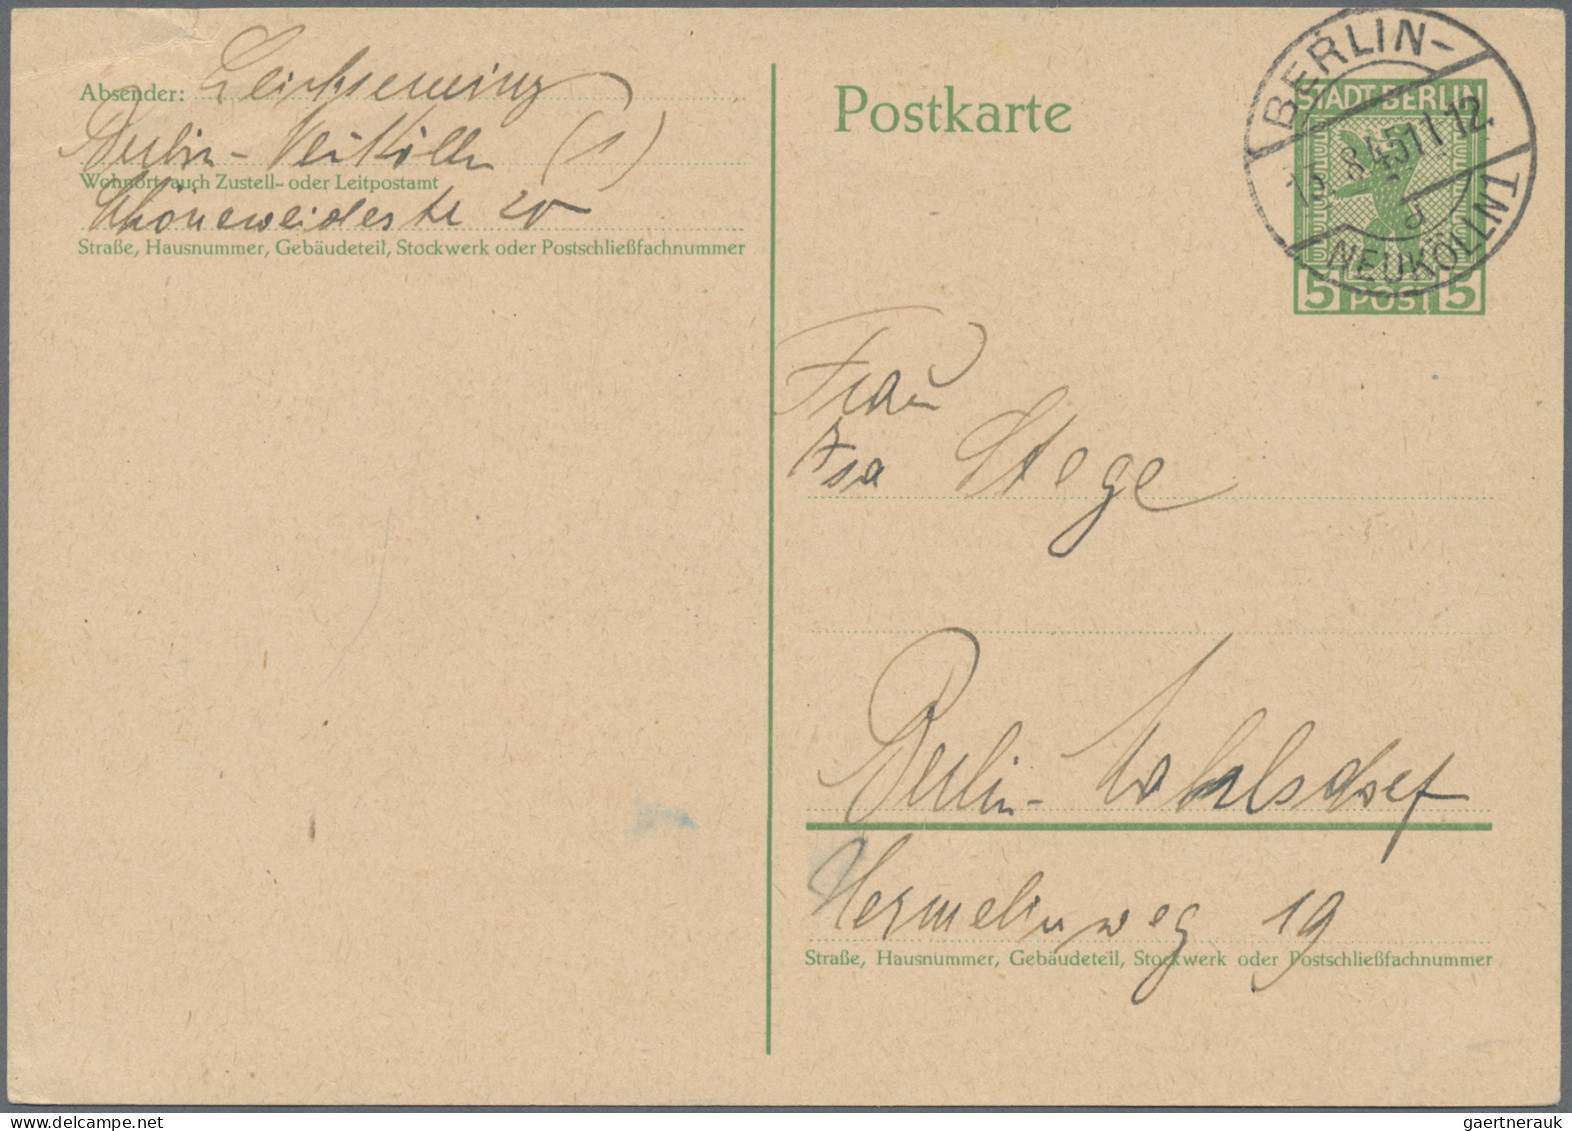 Absender: Leichsenring
Berlin-Neukölln (1)
Wohnort, auch Zustell- oder Leitpostamt
Schöneweiderstr 20
Straße, Hausnummer, Gebäudeteil, Stockwerk oder Postschließfachnummer
Postkarte
BERLIN-
STADT BERLIN
8.45 11-12.
d
NEUKÖLLN 1
5 POST 5
Frau
Isa Stege
Berlin-Mahlsdorf
Hermelinweg 19
Straße, Hausnummer, Gebäudeteil, Stockwerk oder Postschließfachnummer
gaertnerauk